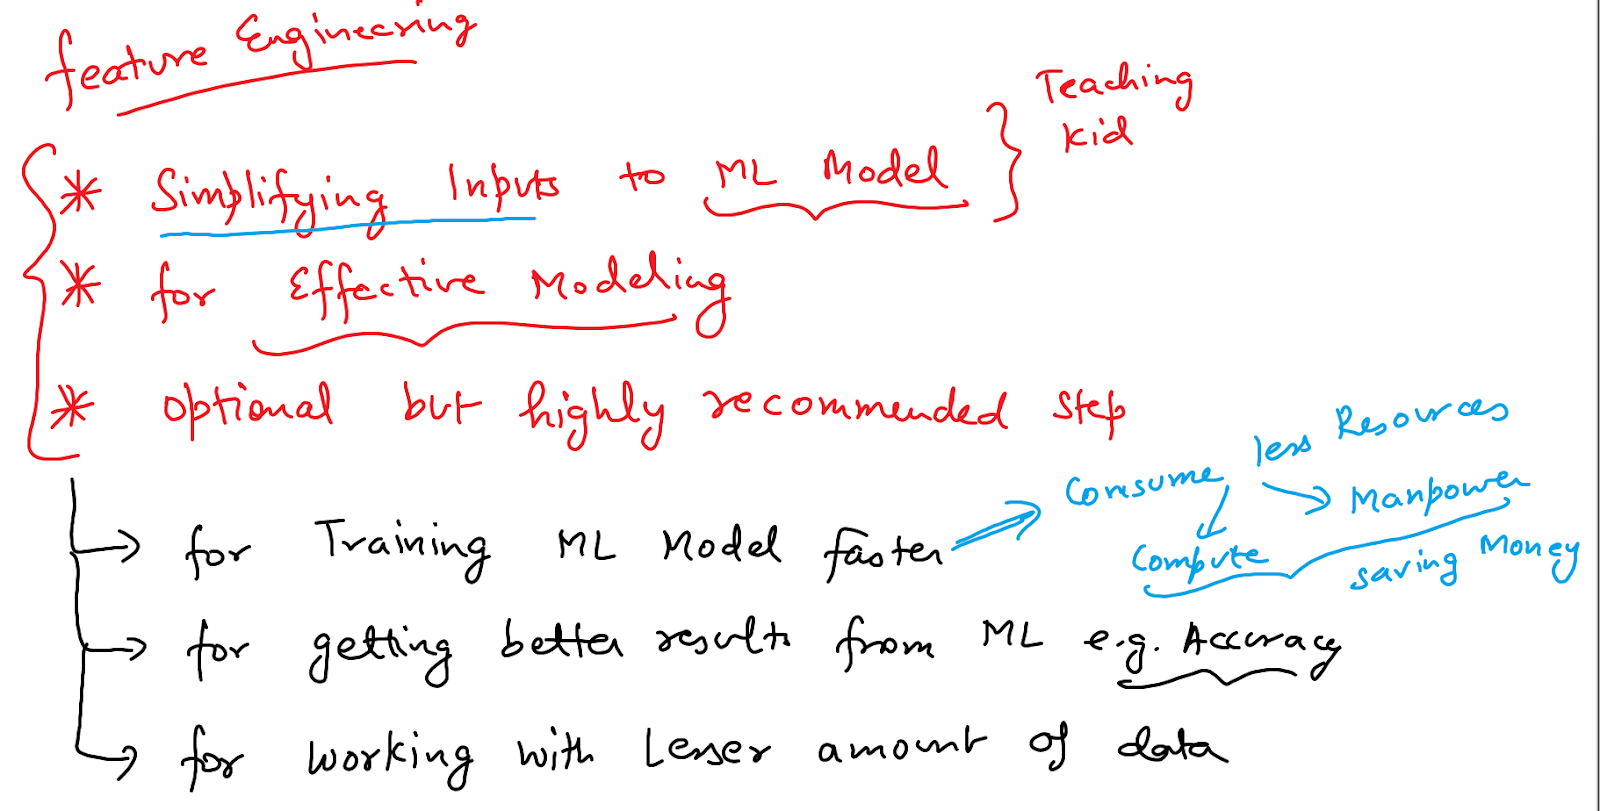 feature Engineering
* Simplifying Inputs to ML Model } Teaching
kid
* for Effective Modeling
* optional but highly recommended step
→ for Training ML Model faster ⇒ Consume less Resources
→ Manpower
Compute
saving Money
→ for getting better results from ML e.g. Accuracy
→ for working with Lesser amount of data